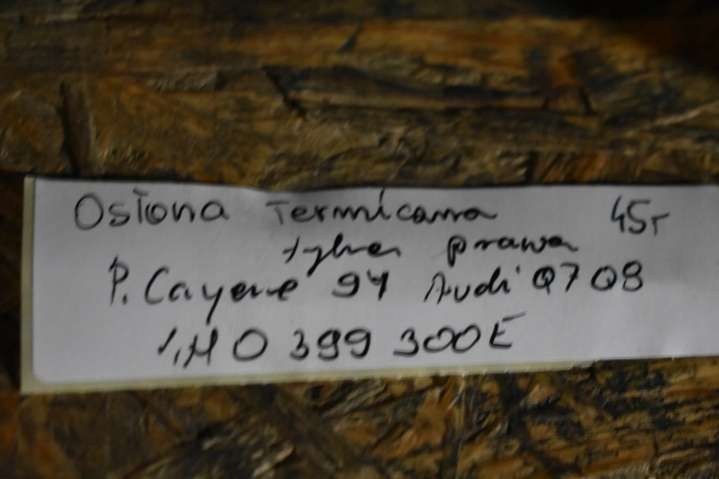 Osłona Termiczna 45r
tylna prawa
P. Cayene 9Y Audi Q7 Q8
HO 399 300E